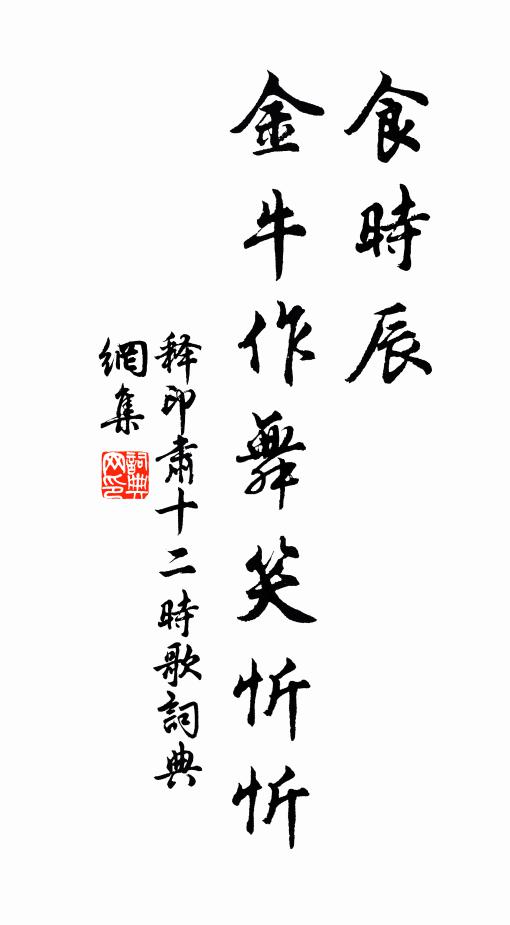 食時辰
金牛作舞笑忻忻
釋印肅十二時歌詞典
網集
詞典網印